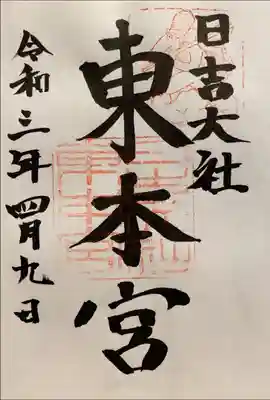 日吉大社
東本宮
令和三年四月九日